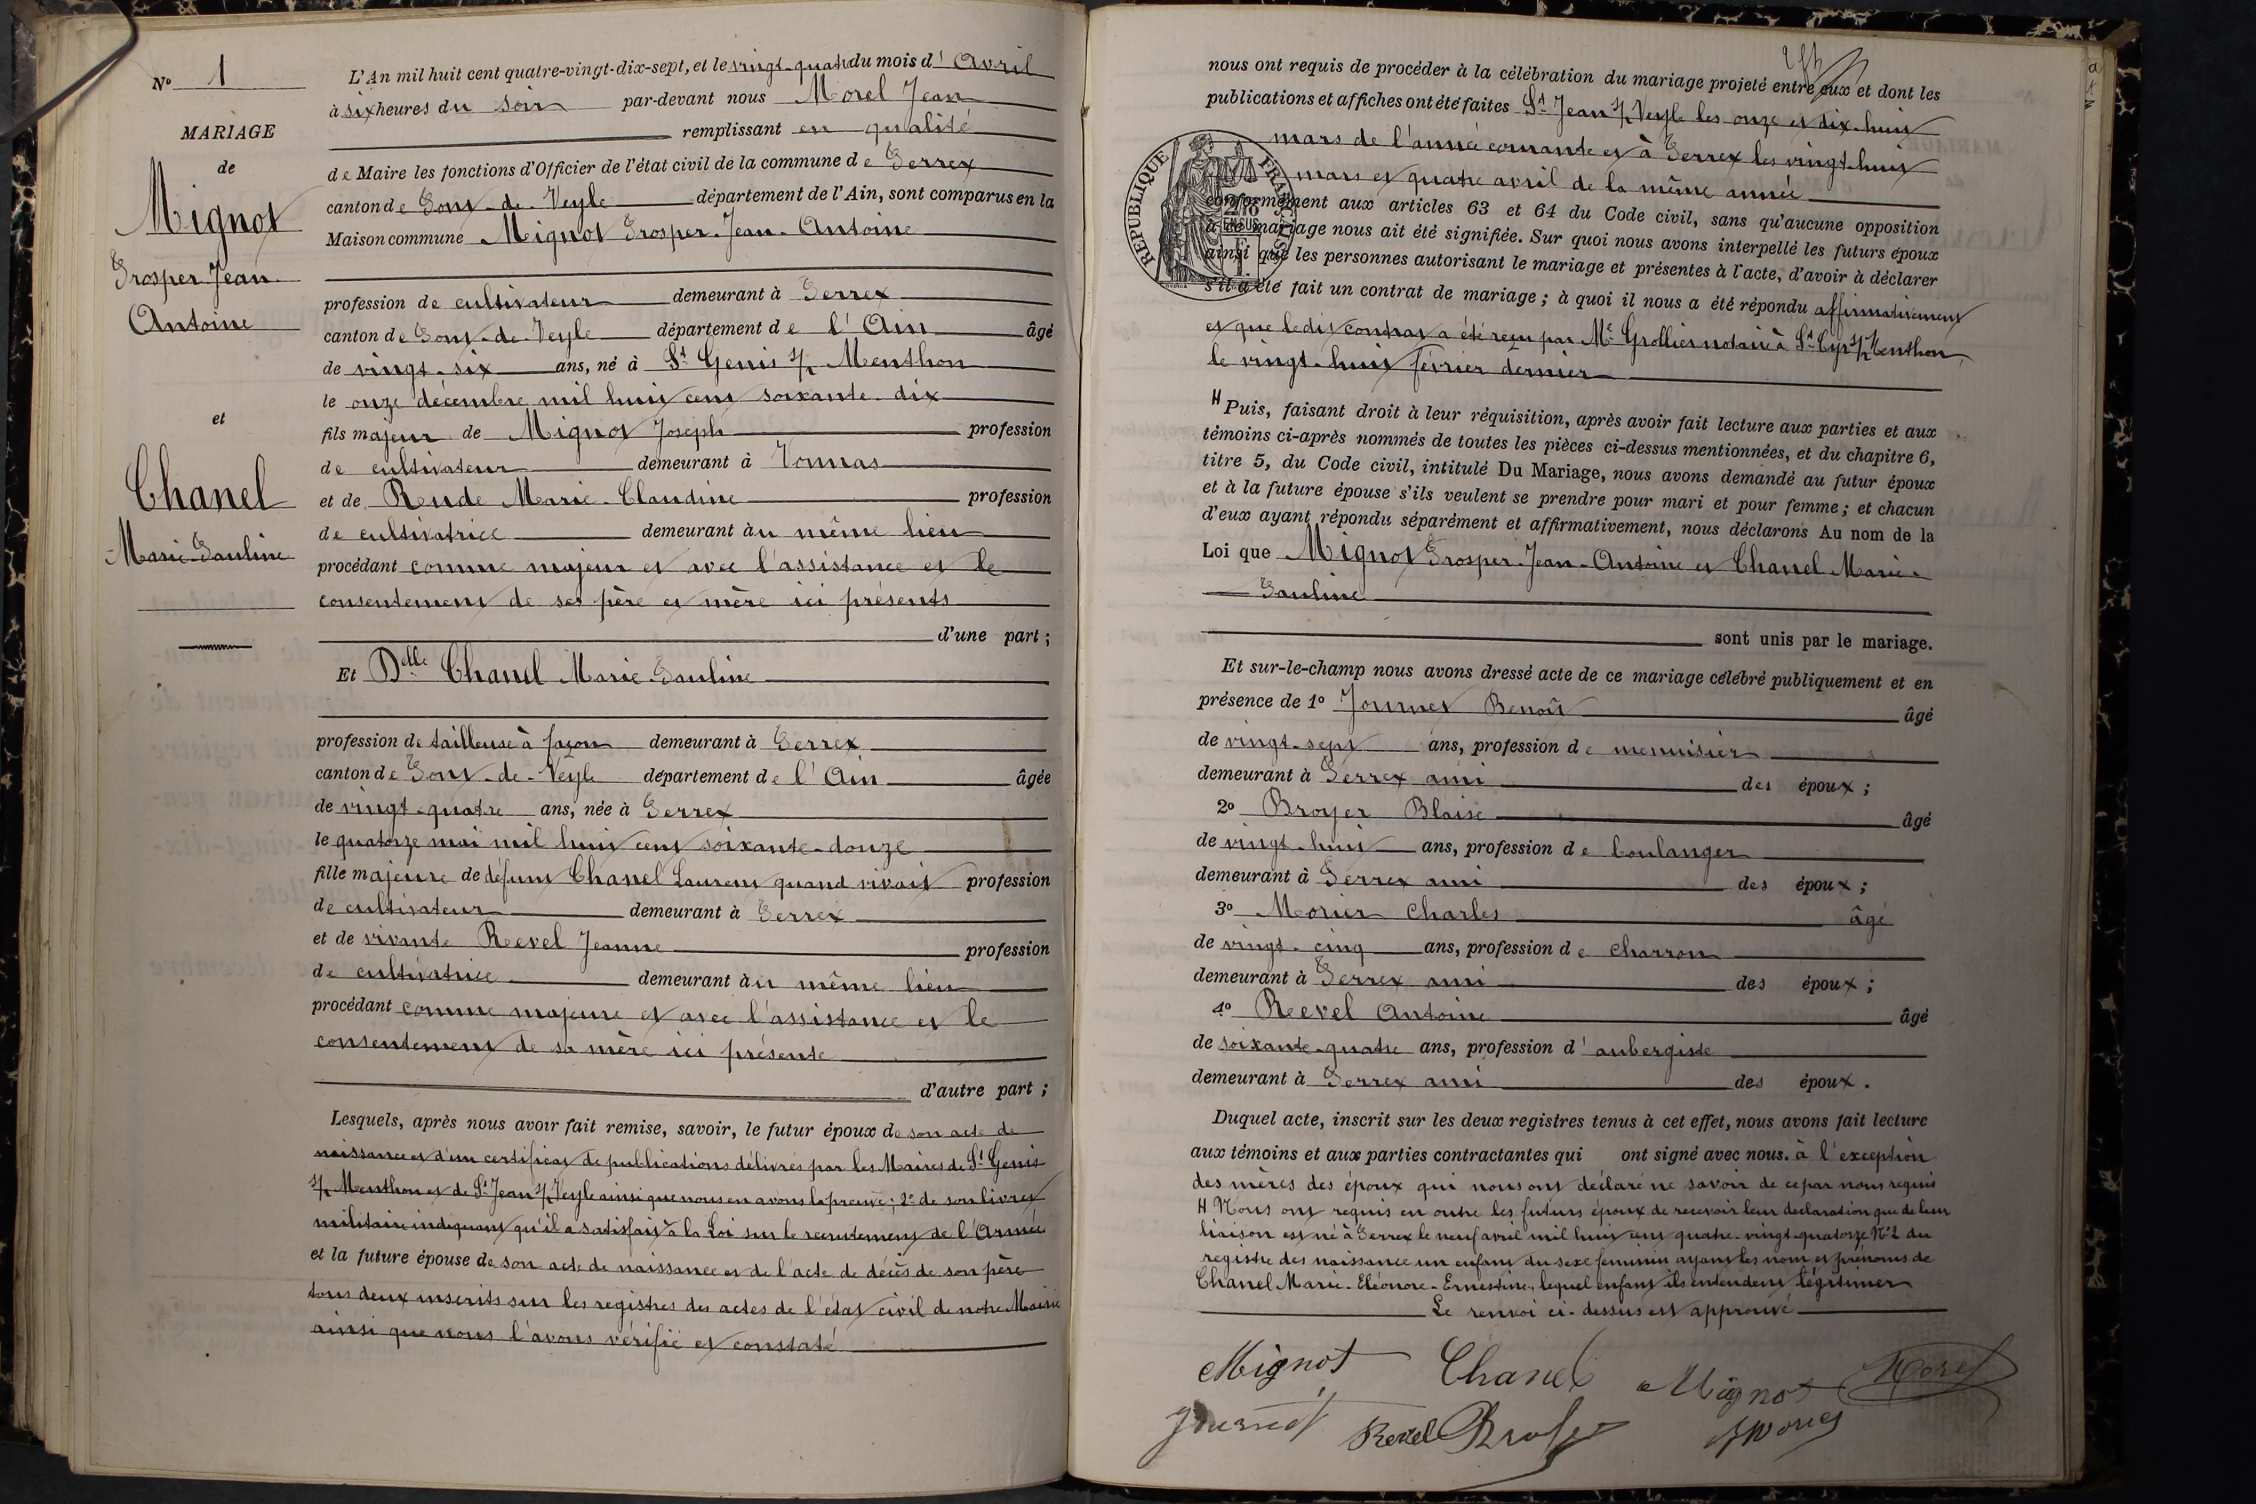 N° 1
MARIAGE
de
Mignot
Prosper Jean
Antoine
et
Chanel
Marie Pauline
L'An mil huit cent quatre-vingt-dix-sept, et le vingt-quatre du mois d'Avril
à six heures du soir par-devant nous Morel Jean
remplissant en qualité
de Maire les fonctions d'Officier de l'état civil de la commune de Perrex
canton de Pont-de-Veyle département de l'Ain, sont comparus en la
Maison commune Mignot Prosper-Jean-Antoine
profession de cultivateur demeurant à Perrex
canton de Pont-de-Veyle département de l'Ain âgé
de vingt-six ans, né à St Genis s/ Menthon
le onze décembre mil huit cent soixante-dix
fils majeur de Mignot Joseph profession
de cultivateur demeurant à Vonnas
et de Rude Marie-Claudine profession
de cultivatrice demeurant au même lieu
procédant comme majeur et avec l'assistance et le
consentement de ses père et mère ici présents
d'une part ;
Et Delle Chanel Marie-Pauline
profession de tailleuse à façon demeurant à Perrex
canton de Pont-de-Veyle département de l'Ain âgée
de vingt-quatre ans, née à Perrex
le quatorze mai mil huit cent soixante-douze
fille majeure de défunt Chanel Laurent quand vivait profession
de cultivateur demeurant à Perrex
et de vivante Revel Jeanne profession
de cultivatrice demeurant au même lieu
procédant comme majeure et avec l'assistance et le
consentement de sa mère ici présente
d'autre part ;
Lesquels, après nous avoir fait remise, savoir, le futur époux de son acte de
naissance et d'un certificat de publications délivrés par les Maires de St Genis
s/ Menthon et de St Jean s/ Veyle ainsi que nous en avons la preuve ; 2° de son livret
militaire indiquant qu'il a satisfait à la Loi sur le recrutement de l'Armée
et la future épouse de son acte de naissance et de l'acte de décès de son père
tous deux inscrits sur les registres des actes de l'état civil de notre Mairie
ainsi que nous l'avons vérifié et constaté
nous ont requis de procéder à la célébration du mariage projeté entre eux et dont les
publications et affiches ont été faites St Jean s/ Veyle les onze et dix-huit
mars de l'année courante et à Perrex les vingt-huit
mars et quatre avril de la même année
conformément aux articles 63 et 64 du Code civil, sans qu'aucune opposition
à ce mariage nous ait été signifiée. Sur quoi nous avons interpellé les futurs époux
ainsi que les personnes autorisant le mariage et présentes à l'acte, d'avoir à déclarer
s'il a été fait un contrat de mariage ; à quoi il nous a été répondu affirmativement
et que ledit contrat a été reçu par Me Grollier notaire à St Cyr s/ Menthon
le vingt-huit février dernier
REPUBLIQUE FRANÇAISE
H Puis, faisant droit à leur réquisition, après avoir fait lecture aux parties et aux
témoins ci-après nommés de toutes les pièces ci-dessus mentionnées, et du chapitre 6,
titre 5, du Code civil, intitulé Du Mariage, nous avons demandé au futur époux
et à la future épouse s'ils veulent se prendre pour mari et pour femme ; et chacun
d'eux ayant répondu séparément et affirmativement, nous déclarons Au nom de la
Loi que Mignot Prosper-Jean-Antoine et Chanel Marie-
Pauline
sont unis par le mariage.
Et sur-le-champ nous avons dressé acte de ce mariage célébré publiquement et en
présence de 1° Journet Benoît âgé
de vingt-sept ans, profession de menuisier
demeurant à Perrex ami des époux ;
2° Broyer Blaise âgé
de vingt-huit ans, profession de boulanger
demeurant à Perrex ami des époux ;
3° Morier Charles âgé
de vingt-cinq ans, profession de charron
demeurant à Perrex ami des époux ;
4° Revel Antoine âgé
de soixante-quatre ans, profession d'aubergiste
demeurant à Perrex ami des époux.
Duquel acte, inscrit sur les deux registres tenus à cet effet, nous avons fait lecture
aux témoins et aux parties contractantes qui ont signé avec nous. à l'exception
des mères des époux qui nous ont déclaré ne savoir de ce par nous requis
H Nous ont requis en outre les futurs époux de recevoir leur déclaration que de leur
liaison est né à Perrex le neuf avril mil huit cent quatre-vingt-quatorze N°2 du
registre des naissance un enfant du sexe féminin ayant les nom et prénoms de
Chanel Marie-Eléonore-Ernestine, lequel enfant ils entendent légitimer
Le renvoi ci-dessus est approuvé
Mignot Chanel Mignot Morel
Journet Revel Broyer Morier